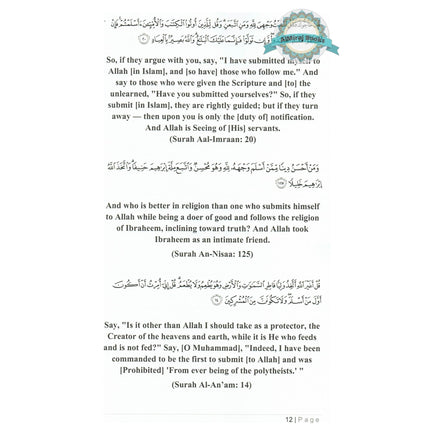 فَإِنْ حَاجُّوكَ فَقُلْ أَسْلَمْتُ وَجْهِيَ لِلَّهِ وَمَنِ اتَّبَعَنِ وَقُل لِّلَّذِينَ أُوتُوا الْكِتَابَ وَالْأُمِّيِّينَ أَأَسْلَمْتُمْ فَإِنْ
وَّإِن تَوَلَّوْا فَإِنَّمَا عَلَيْكَ الْبَلَاغُ وَاللَّهُ بَصِيرٌ بِالْعِبَادِ
So, if they argue with you, say, "I have submitted myself to
Allah [in Islam], and [so have] those who follow me." And
say to those who were given the Scripture and [to] the
unlearned, "Have you submitted yourselves?" So, if they
submit [in Islam], they are rightly guided; but if they turn
away — then upon you is only the [duty of] notification.
And Allah is Seeing of [His] servants.
(Surah Aal-Imraan: 20)
وَمَنْ أَحْسَنُ دِينًا مِّمَّنْ أَسْلَمَ وَجْهَهُ لِلَّهِ وَهُوَ مُحْسِنٌ وَاتَّبَعَ مِلَّةَ إِبْرَاهِيمَ حَنِيفًا وَاتَّخَذَ اللَّهُ
إِبْرَاهِيمَ خَلِيلًا ١٢٥
And who is better in religion than one who submits himself
to Allah while being a doer of good and follows the religion
of Ibraheem, inclining toward truth? And Allah took
Ibraheem as an intimate friend.
(Surah An-Nisaa: 125)
قُلْ أَغَيْرَ اللَّهِ أَتَّخِذُ وَلِيًّا فَاطِرِ السَّمَاوَاتِ وَالْأَرْضِ وَهُوَ يُطْعِمُ وَلَا يُطْعَمُ قُلْ إِنِّي أُمِرْتُ أَنْ أَكُونَ
أَوَّلَ مَنْ أَسْلَمَ وَلَا تَكُونَنَّ مِنَ الْمُشْرِكِينَ ١٤
Say, "Is it other than Allah I should take as a protector, the
Creator of the heavens and earth, while it is He who feeds
and is not fed?" Say, [O Muhammad], "Indeed, I have been
commanded to be the first to submit [to Allah] and was
[Prohibited] 'From ever being of the polytheists.' "
(Surah Al-An'am: 14)
12 | Page